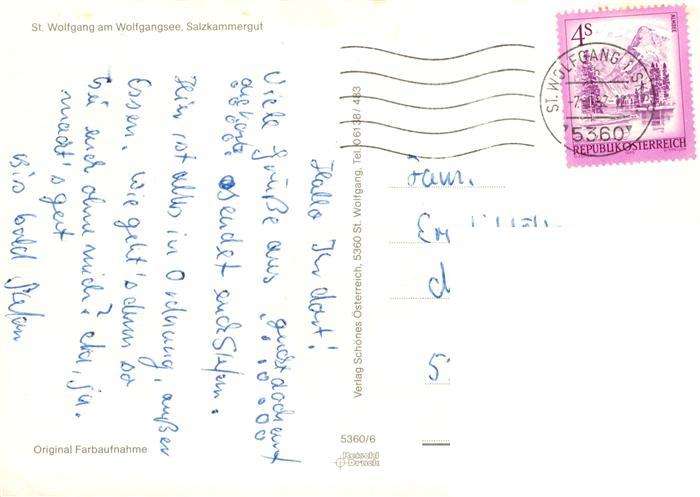 St. Wolfgang am Wolfgangsee, Salzkammergut
Hallo Ihr dort!
Viele Grüße aus
sendet euch Stefan.
Hier ist alles in Ordnung, außer
Essen. Wie geht's denn so
bei euch ohne mich? Na, ja.
macht's gut
Bis bald Stefan
Original Farbaufnahme
Verlag Schönes Österreich, 5360 St. Wolfgang, Tel. 0 61 38 / 483
5360/6
4S
ALMSEE
REPUBLIK ÖSTERREICH
ST. WOLFGANG
5360
Fam.